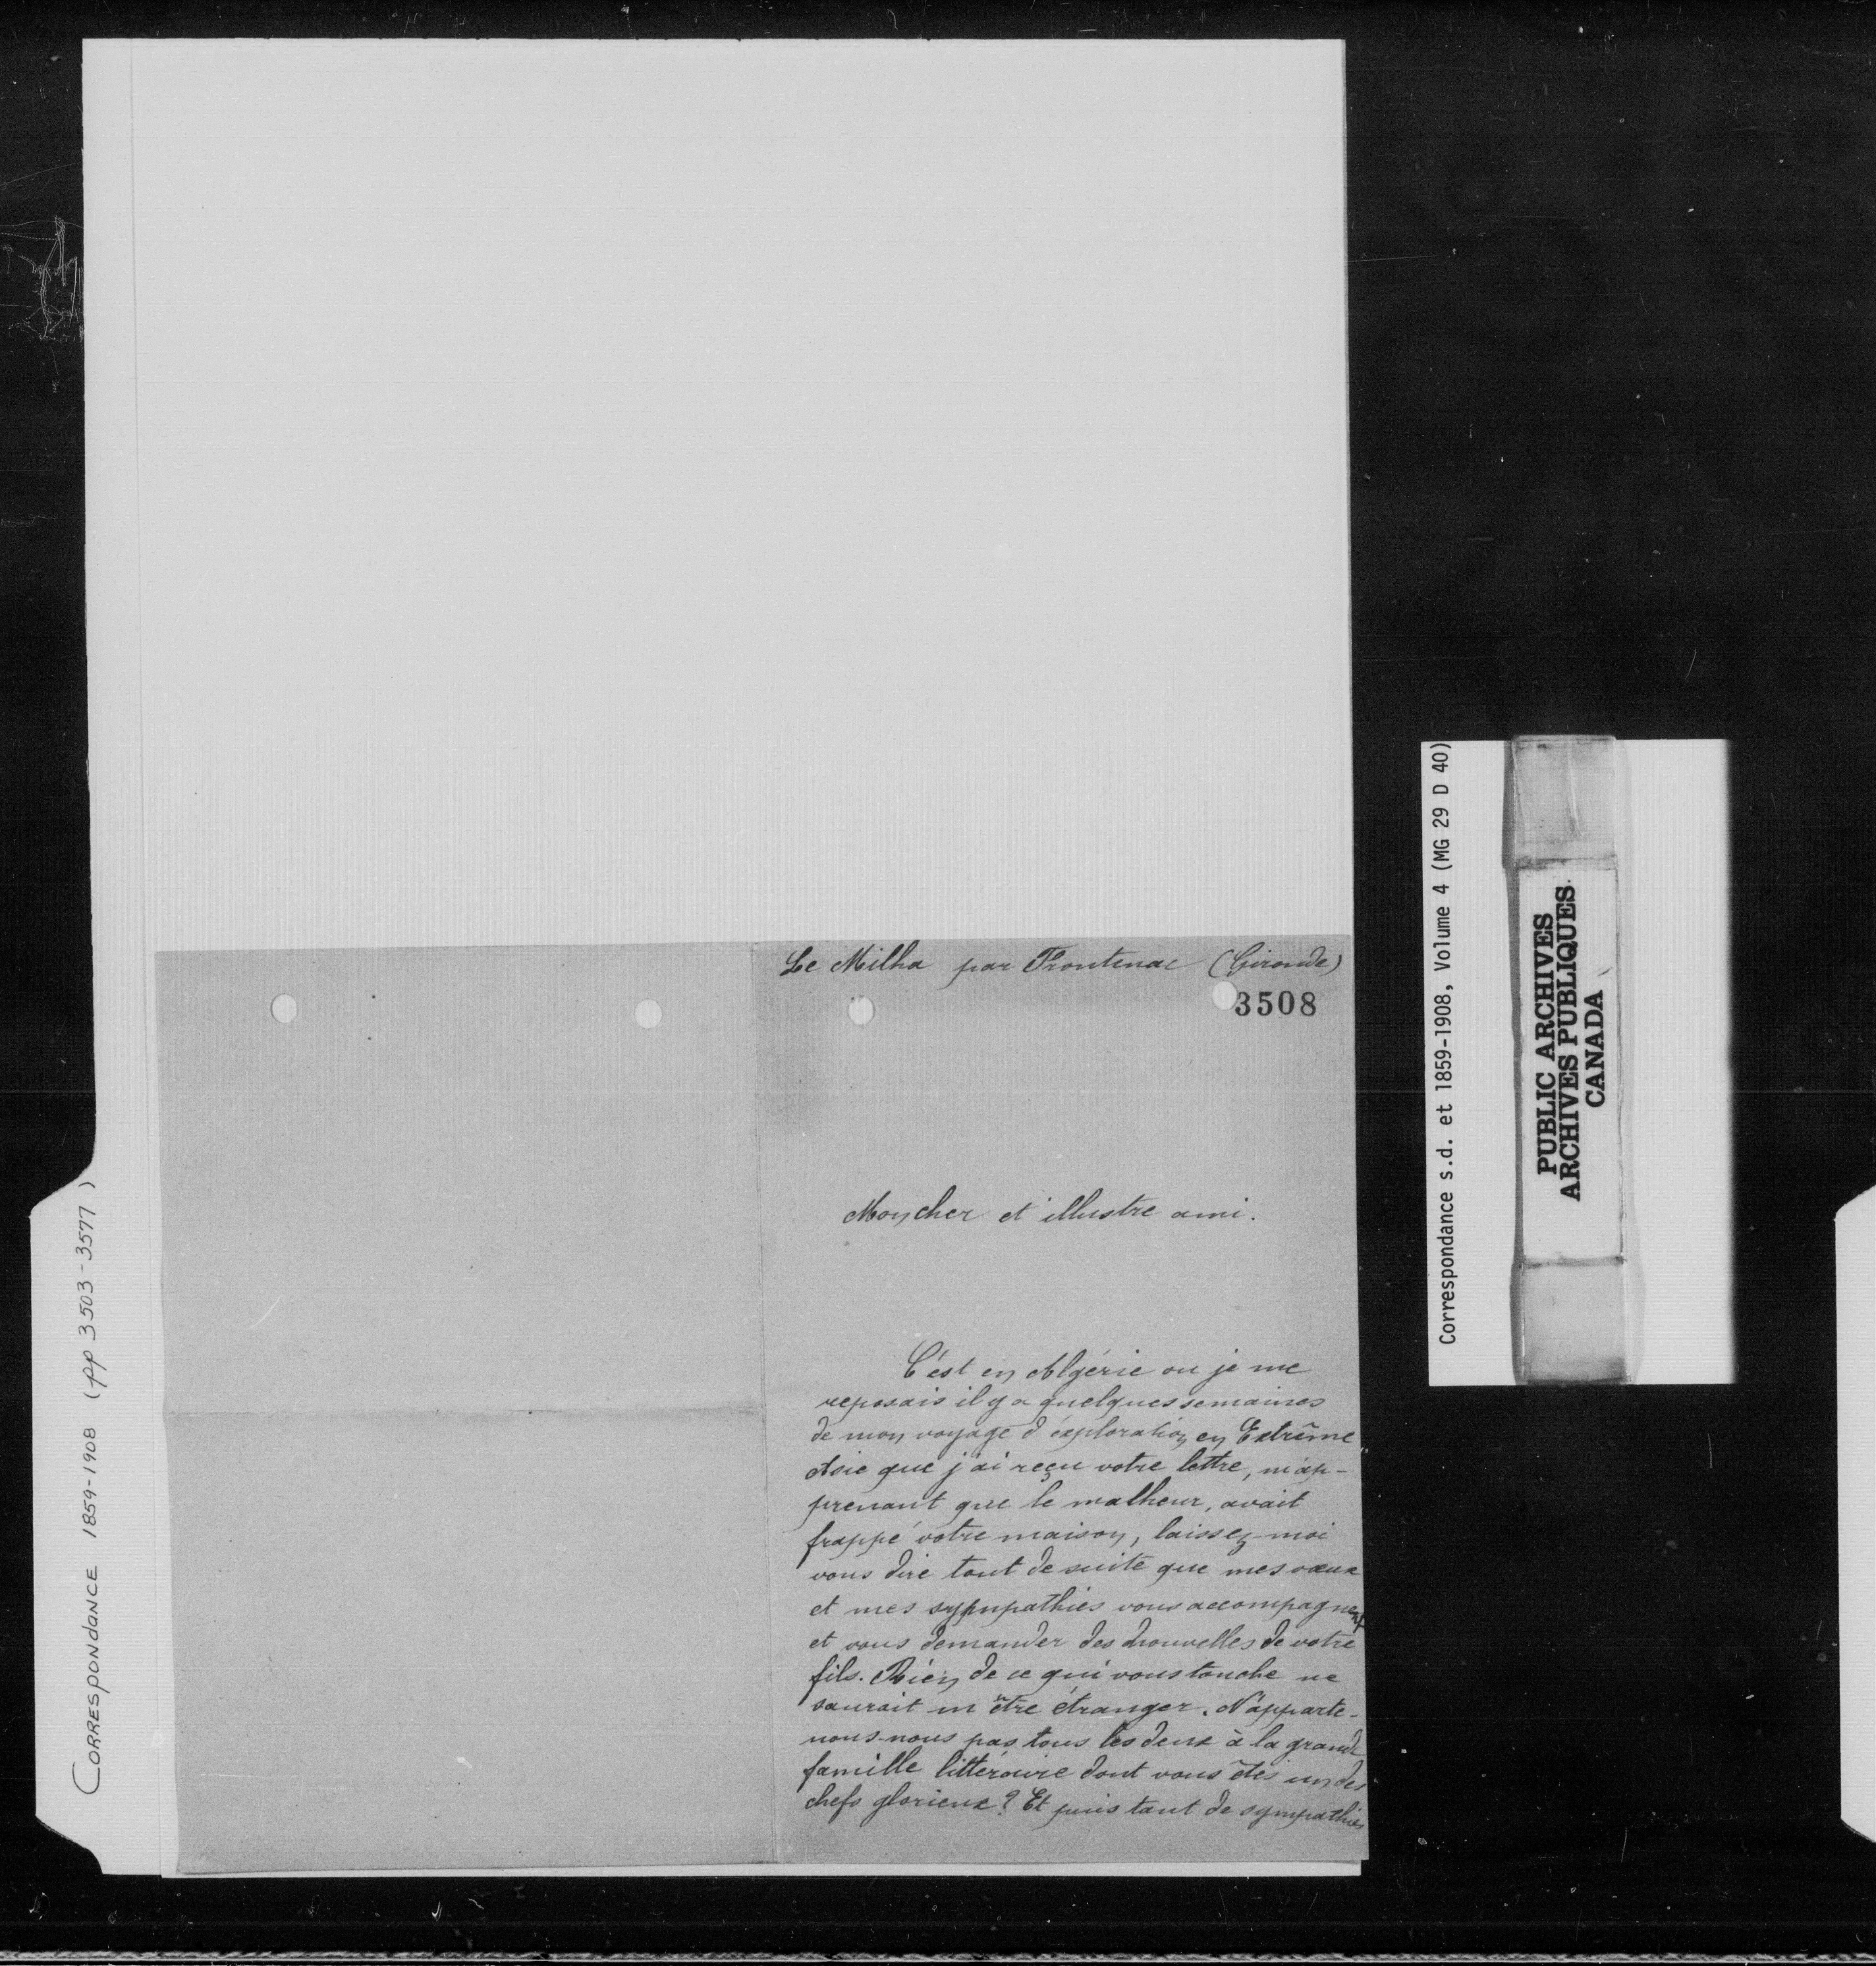 Le Milha par Frontenac (Gironde)
3508
Mon cher et illustre ami.
C'est en Algérie ou je me
reposais il y a quelques semaines
de mon voyage d'éxploration en Extrême
Asie que j'ai reçu votre lettre, m'ap-
prenant que le malheur, avait
frappé votre maison, laissez-moi
vous dire tout de suite que mes vœux
et mes sympathies vous accompagnent
et vous demander des nouvelles de votre
fils. Rien de ce qui vous touche ne
saurait m'être étranger. N'apparte-
nons-nous pas tous les deux à la grande
famille littéraire dont vous êtes un des
chefs glorieux? Et puis tant de sympathies
CORRESPONDANCE 1859-1908 (pp 3503-3577)
Correspondance s.d. et 1859-1908, Volume 4 (MG 29 D 40)
PUBLIC ARCHIVES
ARCHIVES PUBLIQUES
CANADA